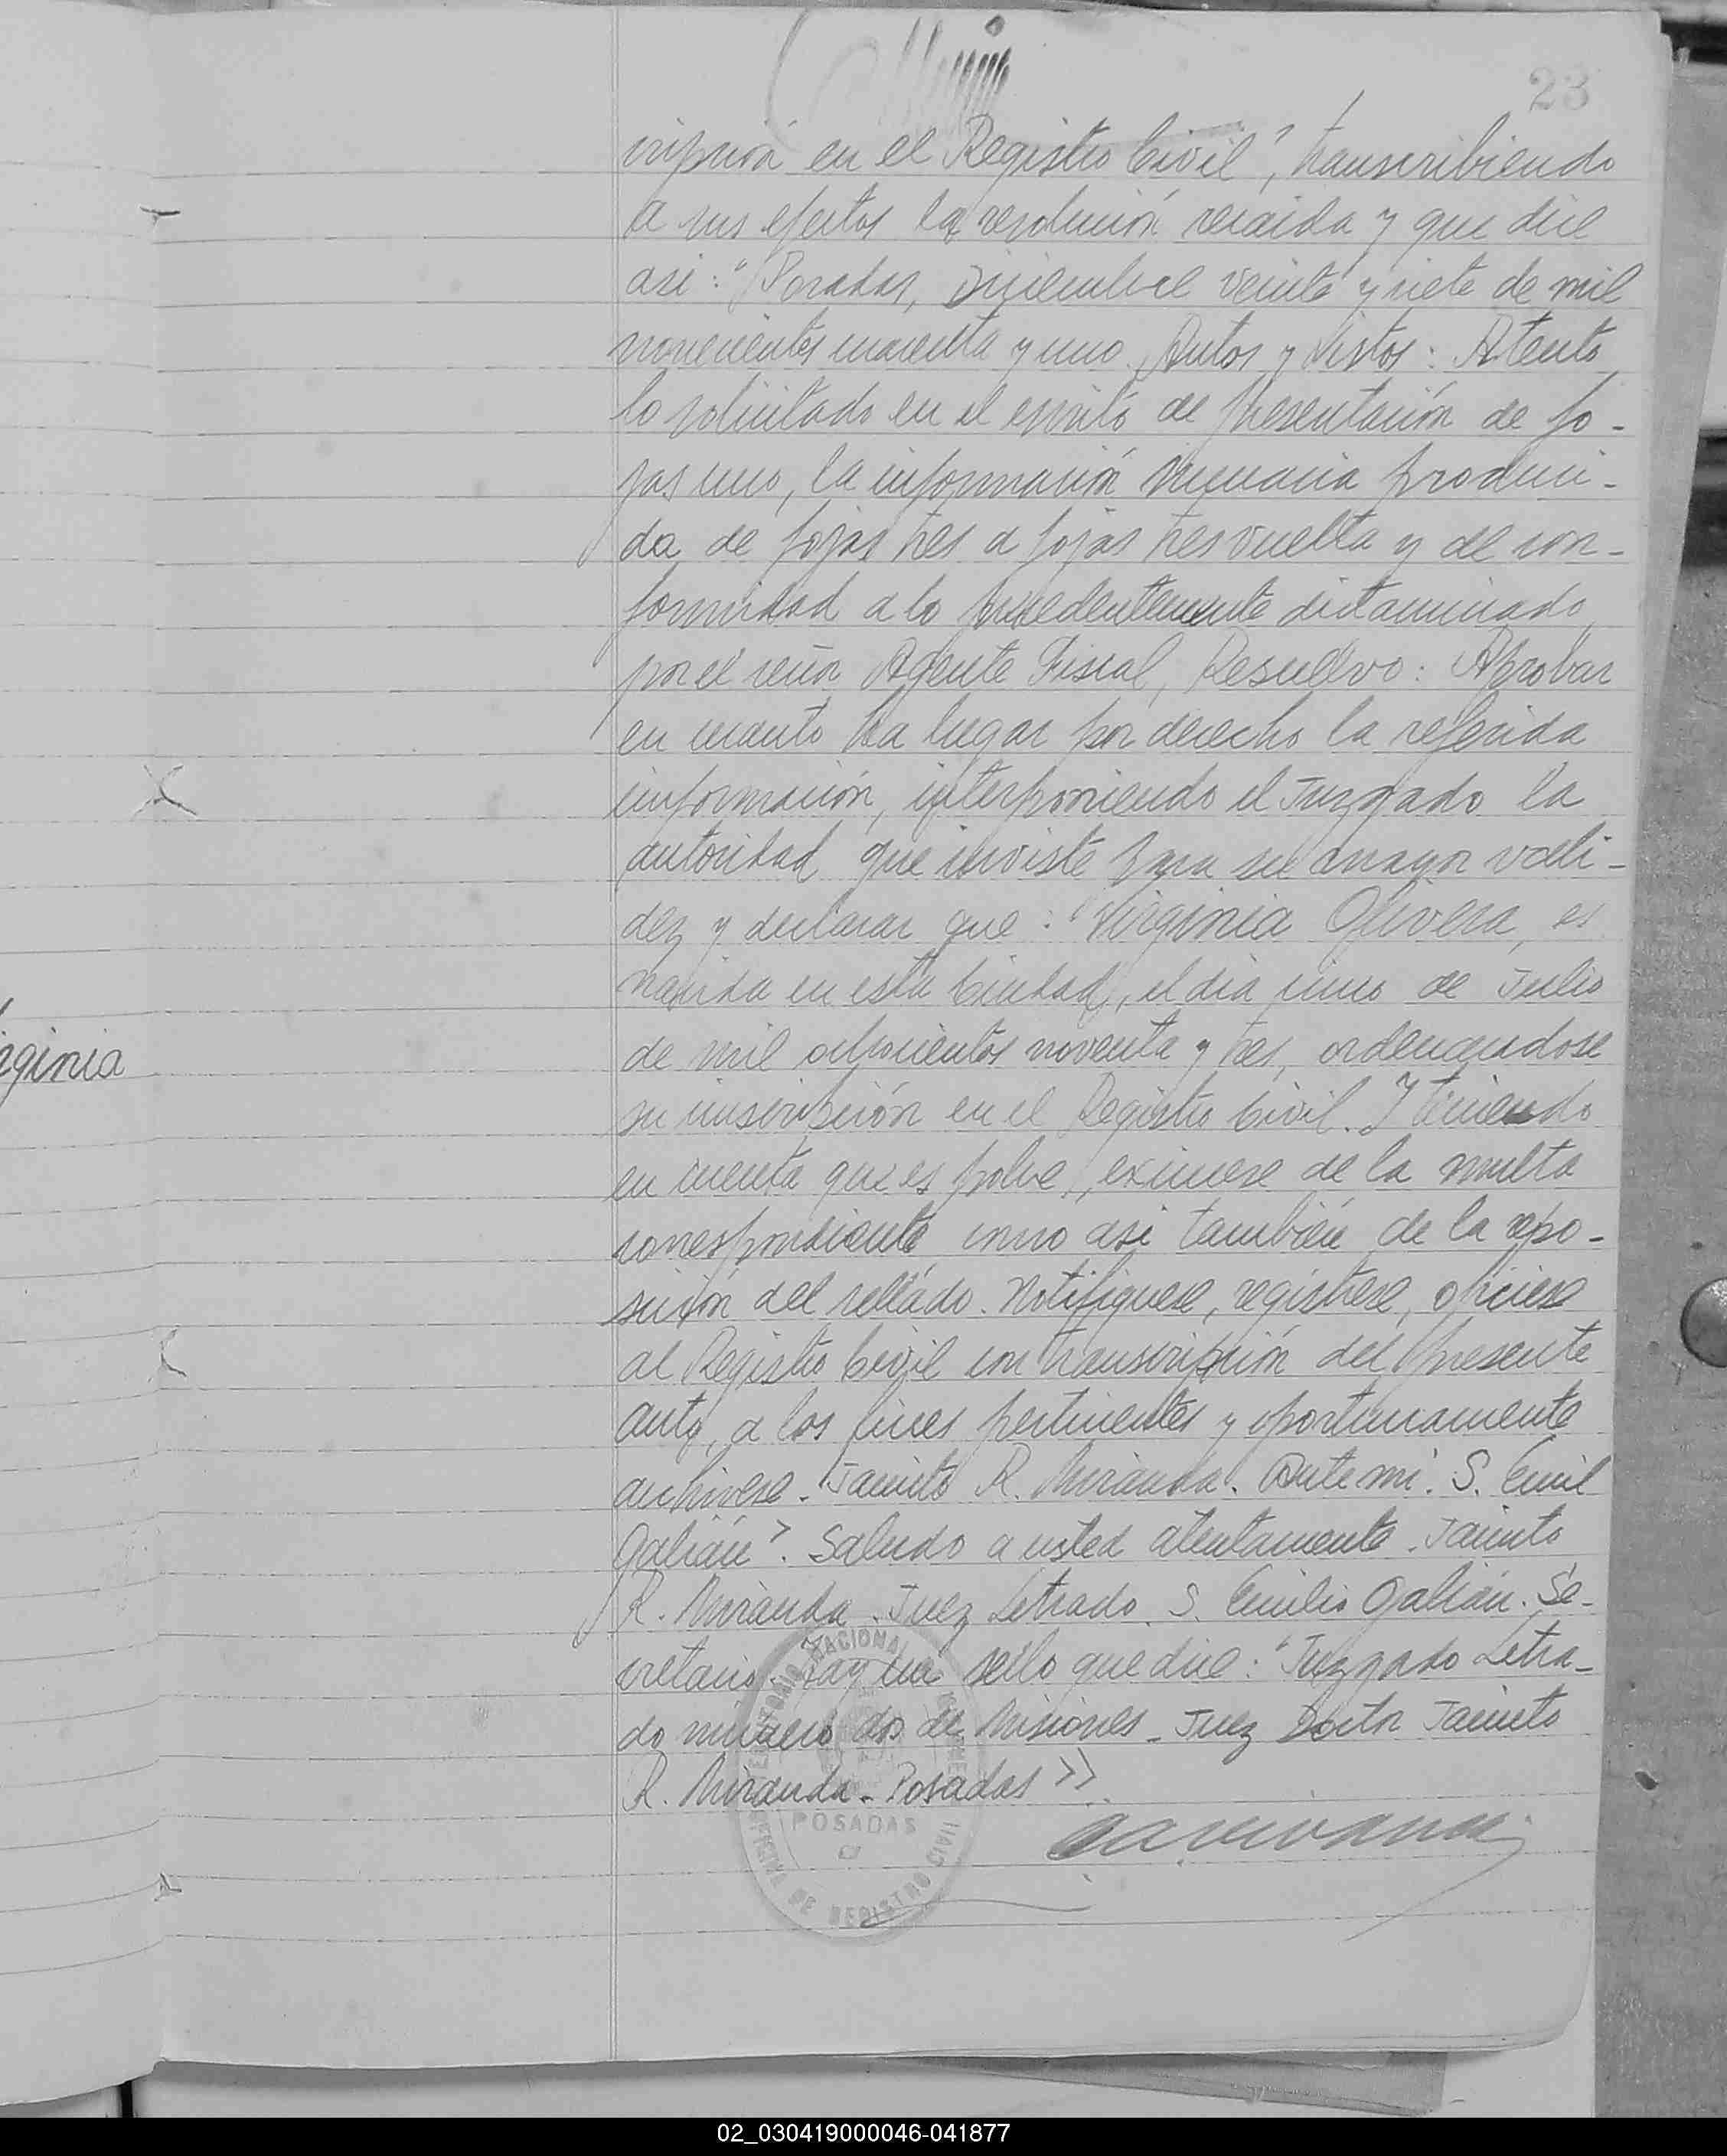 23
cripción en el Registro Civil", transcribiendo
a sus efectos la resolución recaida y que dice
asi: "Posadas, Diciembre veinte y siete de mil
novecientos cuarenta y uno. Autos y Vistos: Atento
lo solicitado en el escrito de presentación de fo-
jas uno, la información sumaria produci-
da de fojas tres a fojas tres vuelta y de con-
formidad a lo precedentemente dictaminado
por el señor Agente Fiscal, Resuelvo: Aprobar
en cuanto ha lugar por derecho la referida
información, interponiendo el Juzgado la
autoridad que inviste para su mayor vali-
dez y declarar que: Virginia Olivera, es
nacida en esta Ciudad, el dia cinco de Julio
de mil ochocientos noventa y tres, ordenandose
su inscripción en el Registro Civil. Y teniendo
en cuenta que es pobre, eximese de la multa
correspondiente como asi también de la repo-
sición del sellado. Notifiquese, registrese, oficiese
al Registro Civil con transcripción del presente
auto, a los fines pertinentes y oportunamente
archivese. Jacinto R. Miranda. Ante mi: S. Emil
Galián". Saludo a usted atentamente. Jacinto
R. Miranda. Juez Letrado. S. Emilio Galián. Se-
cretario. Hay un sello que dice: "Juzgado Letra-
do número dos de Misiones - Juez Doctor Jacinto
R. Miranda - Posadas">>
TERRITORIO NACIONAL DE MISIONES
POSADAS
OFICINA DE REGISTRO CIVIL
rginia
02_030419000046-041877